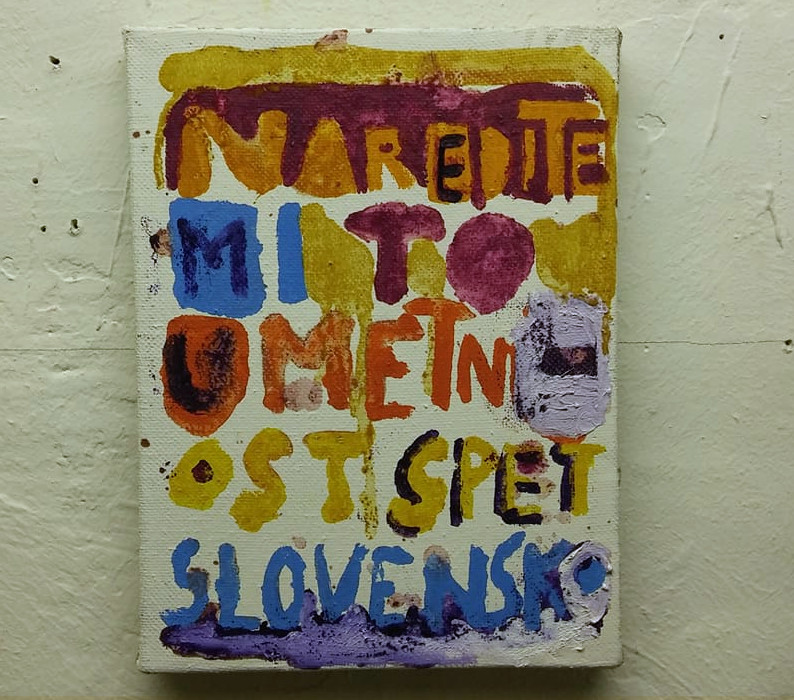 NAREDITE
MI TO
UMETN
OST SPET
SLOVENSKO